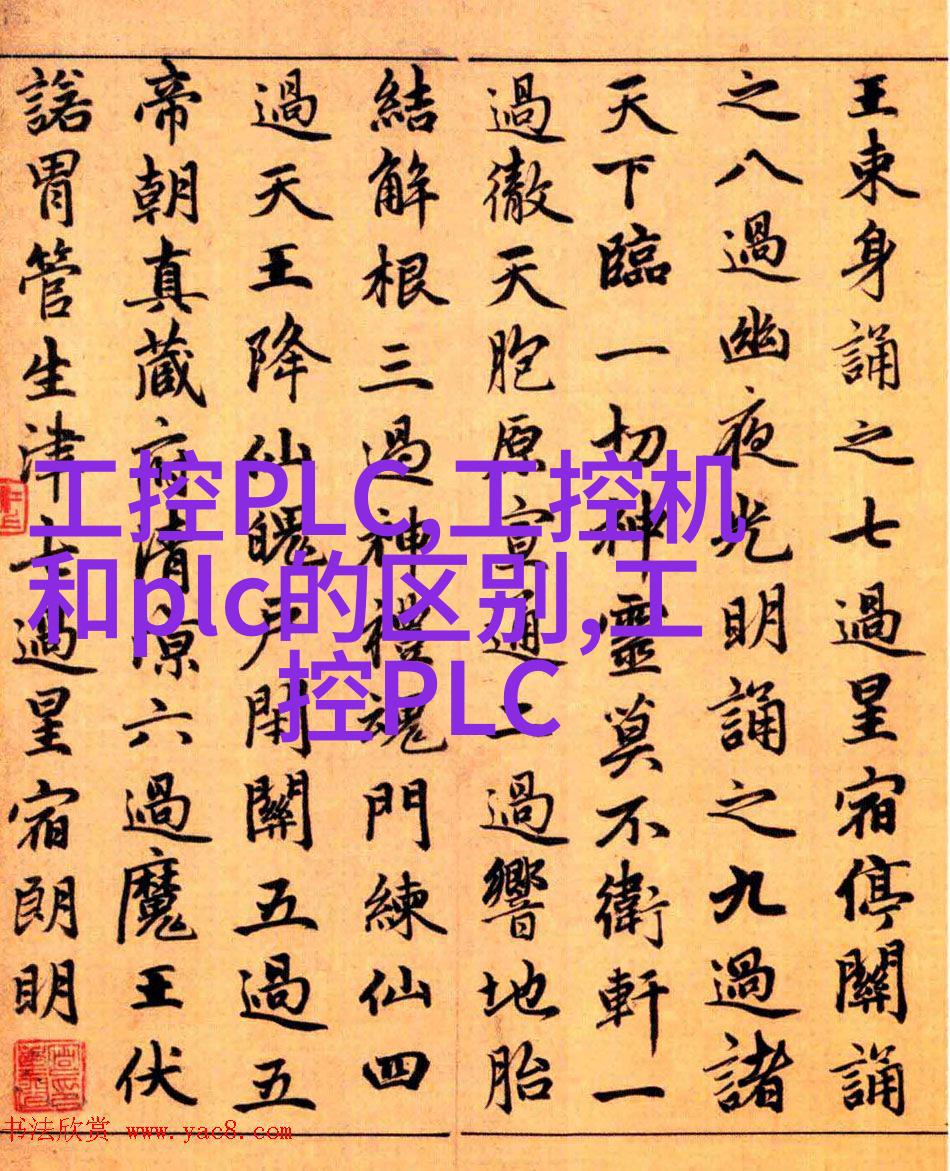 王東身誦之七過星宿停關誦
之八過幽夜光明誦之九過諸
天下臨一切神靈莫不衛軒一
過徹天胞原宣通二過響地胎
結解根三過神禮魂門練仙四
過天王降仙魄戶閉關五過五
帝朝真藏府清涼六過魔王伏
諾胃管生津七過星宿朗明
工控PLC,工控机
和plc的区别,工
控PLC
书法欣赏 www.yac8.com